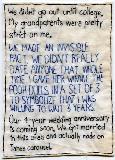 We didn't go out until college.
My grandparents were pretty
strict on me.
WE MADE AN INVISIBLE
PACT. WE DIDN'T REALLY
DATE ANYONE THAT WHOLE
TIME. GAVE ME
IN A SET OF 3
TO SYMBOLIZE THAT I WAS
WILLING TO WAIT 3 YEARS.
Our 4-year wedding anniversary
is coming soon. We got married
in this area and actually rode on
Jane's carousel.